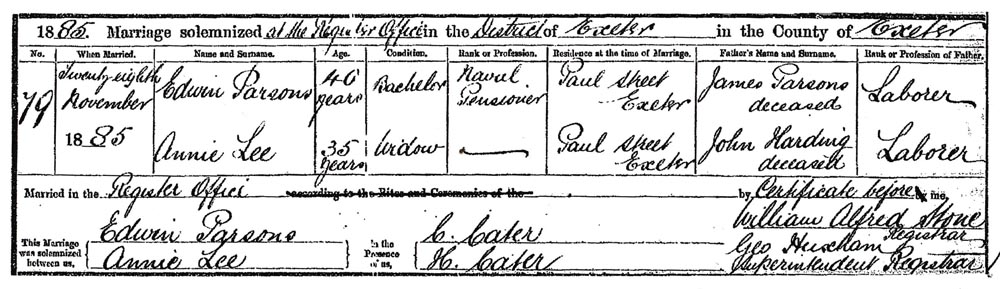 1885. Marriage solemnized at the Register Office in the District of Exeter in the County of Exeter
No. When Married. Name and Surname. Age. Condition. Rank or Profession. Residence at the time of Marriage. Father's Name and Surname. Rank or Profession of Father.
79 Twenty eighth November 1885 Edwin Parsons 40 years Bachelor Naval Pensioner Paul Street Exeter James Parsons deceased Laborer
Annie Lee 35 years Widow — Paul Street Exeter John Harding deceased Laborer
Married in the Register Office according to the Rites and Ceremonies of the by Certificate before me,
This Marriage was solemnized between us, Edwin Parsons Annie Lee In the Presence of us, C. Cater H. Cater William Alfred Stone Registrar
Geo Huxham Superintendent Registrar